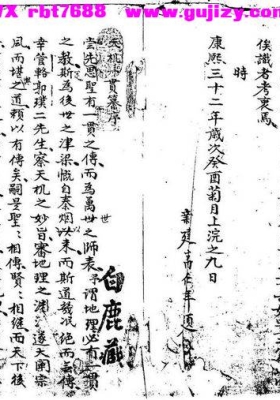 X rbt7688 www.gujizy.com
俟識者考東焉
時
康熙三十二年歲次癸酉菊月上浣之九日
新建高峰
天机一貫纂序
先思聖有一貫之傳而為萬世之師表予謂地理必有一
之教斯為後世之津梁慨自秦烟以来而斯道幾泯絕而無傳
幸管輅郭璞二先生察天机之妙旨審地理之淵遂大開宗
風而堪之道賴以有傳矣嗣是聖:相傳賢:相繼而天下後
世
白鹿藏